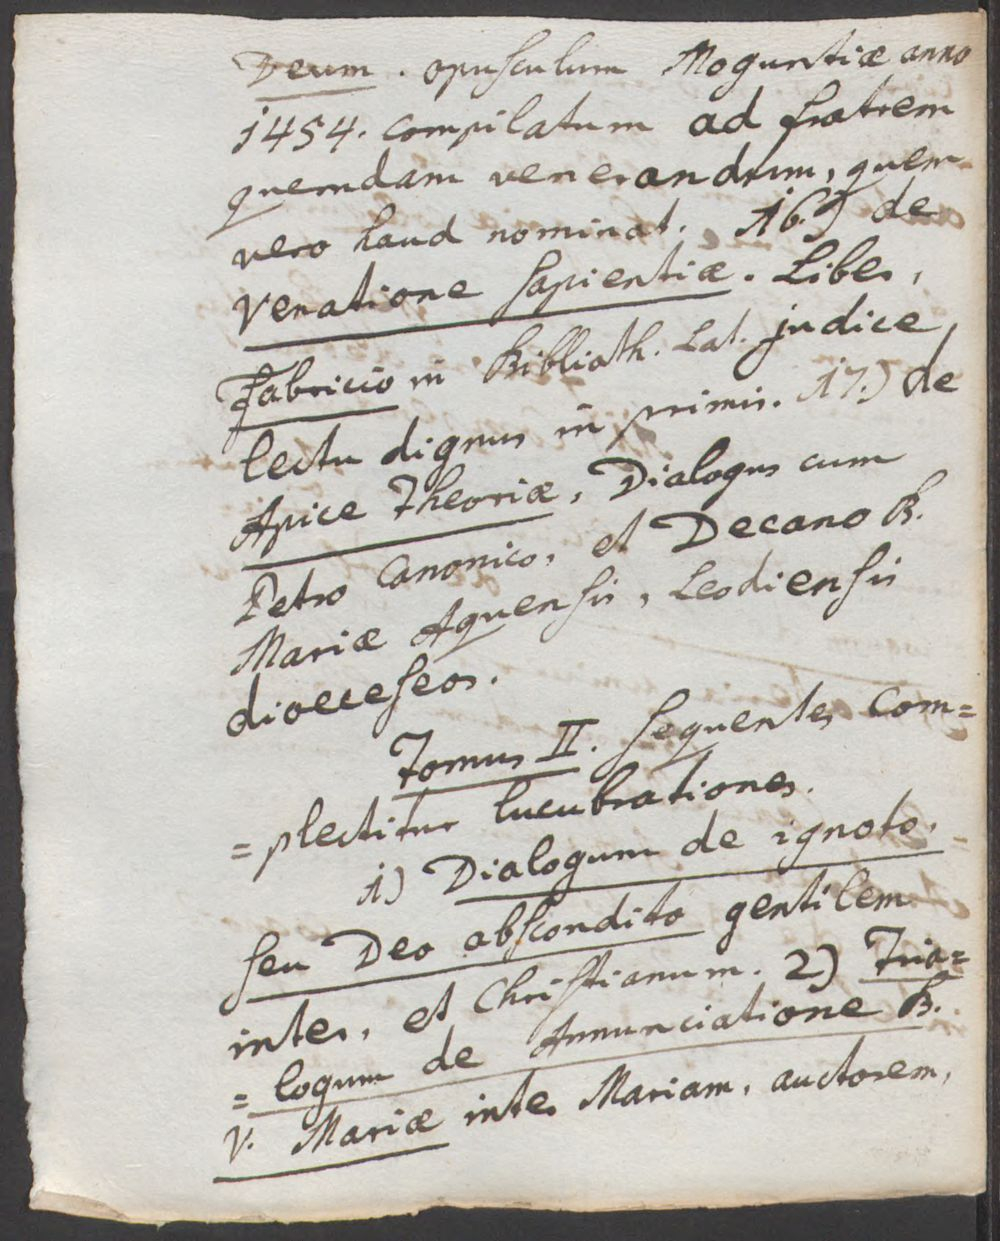 Deum. opusculum Moguntiæ anno
1454. compilatum ad fratrem
quemdam venerandum, quem
vero haud nominat. 16.) de
Venatione sapientiæ. Liber,
Fabricio in Biblioth. Lat. judice,
lectu dignus in primis. 17.) de
Apice Theoriæ, Dialogus cum
Petro Canonico, et Decano B.
Mariæ Aquensis, Leodiensis
dioeceseos.
Tomus II. sequentes com=
=plectitur lucubrationes.
1) Dialogum de ignoto,
seu Deo abscondito gentilem
inter, et Christianum. 2) Tria=
=logum de Annunciatione B.
V. Mariæ inter Mariam, auctorem,